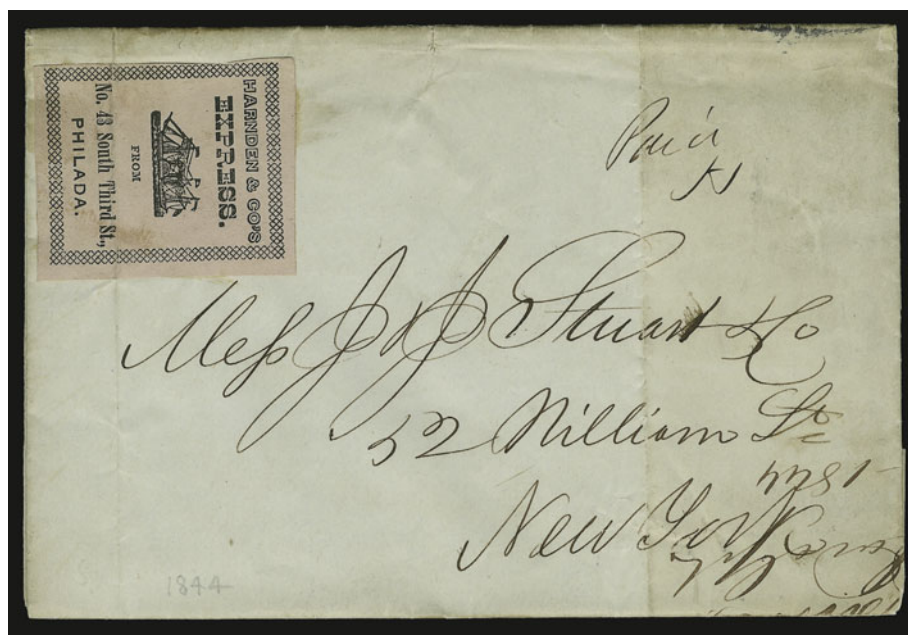 HARNDEN & CO'S
EXPRESS.
FROM
No. 43 South Third St.,
PHILADA.
Paid
Mess J & J Stuart & Co
52 William St
New York
1844
1844